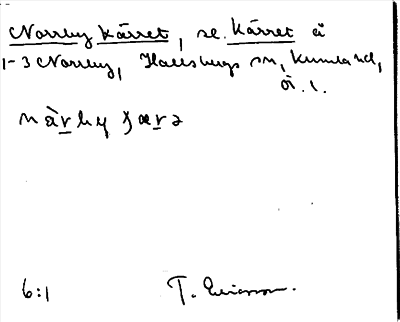 Norrby Kärret, se. Kärret å
1-3 Norrby, Hallsbergs sn, Kumla hd,
ö. 1.
nàrby ʃærə
6:1 T. Ericsson.